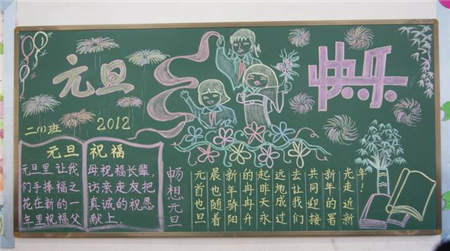 元旦
快乐
二(1)班
2012
元旦 祝福
元旦里让我
们手捧福之
花在新的一
年里祝福父
母祝福长辈,
访亲走友把
真诚的祝愿
献上。
畅想元旦
元首也旦
晨也随着
新年骄阳
的冉冉升
起昨天永
远地成过
去让我们
共同迎接
新年的署
光走近新
年!